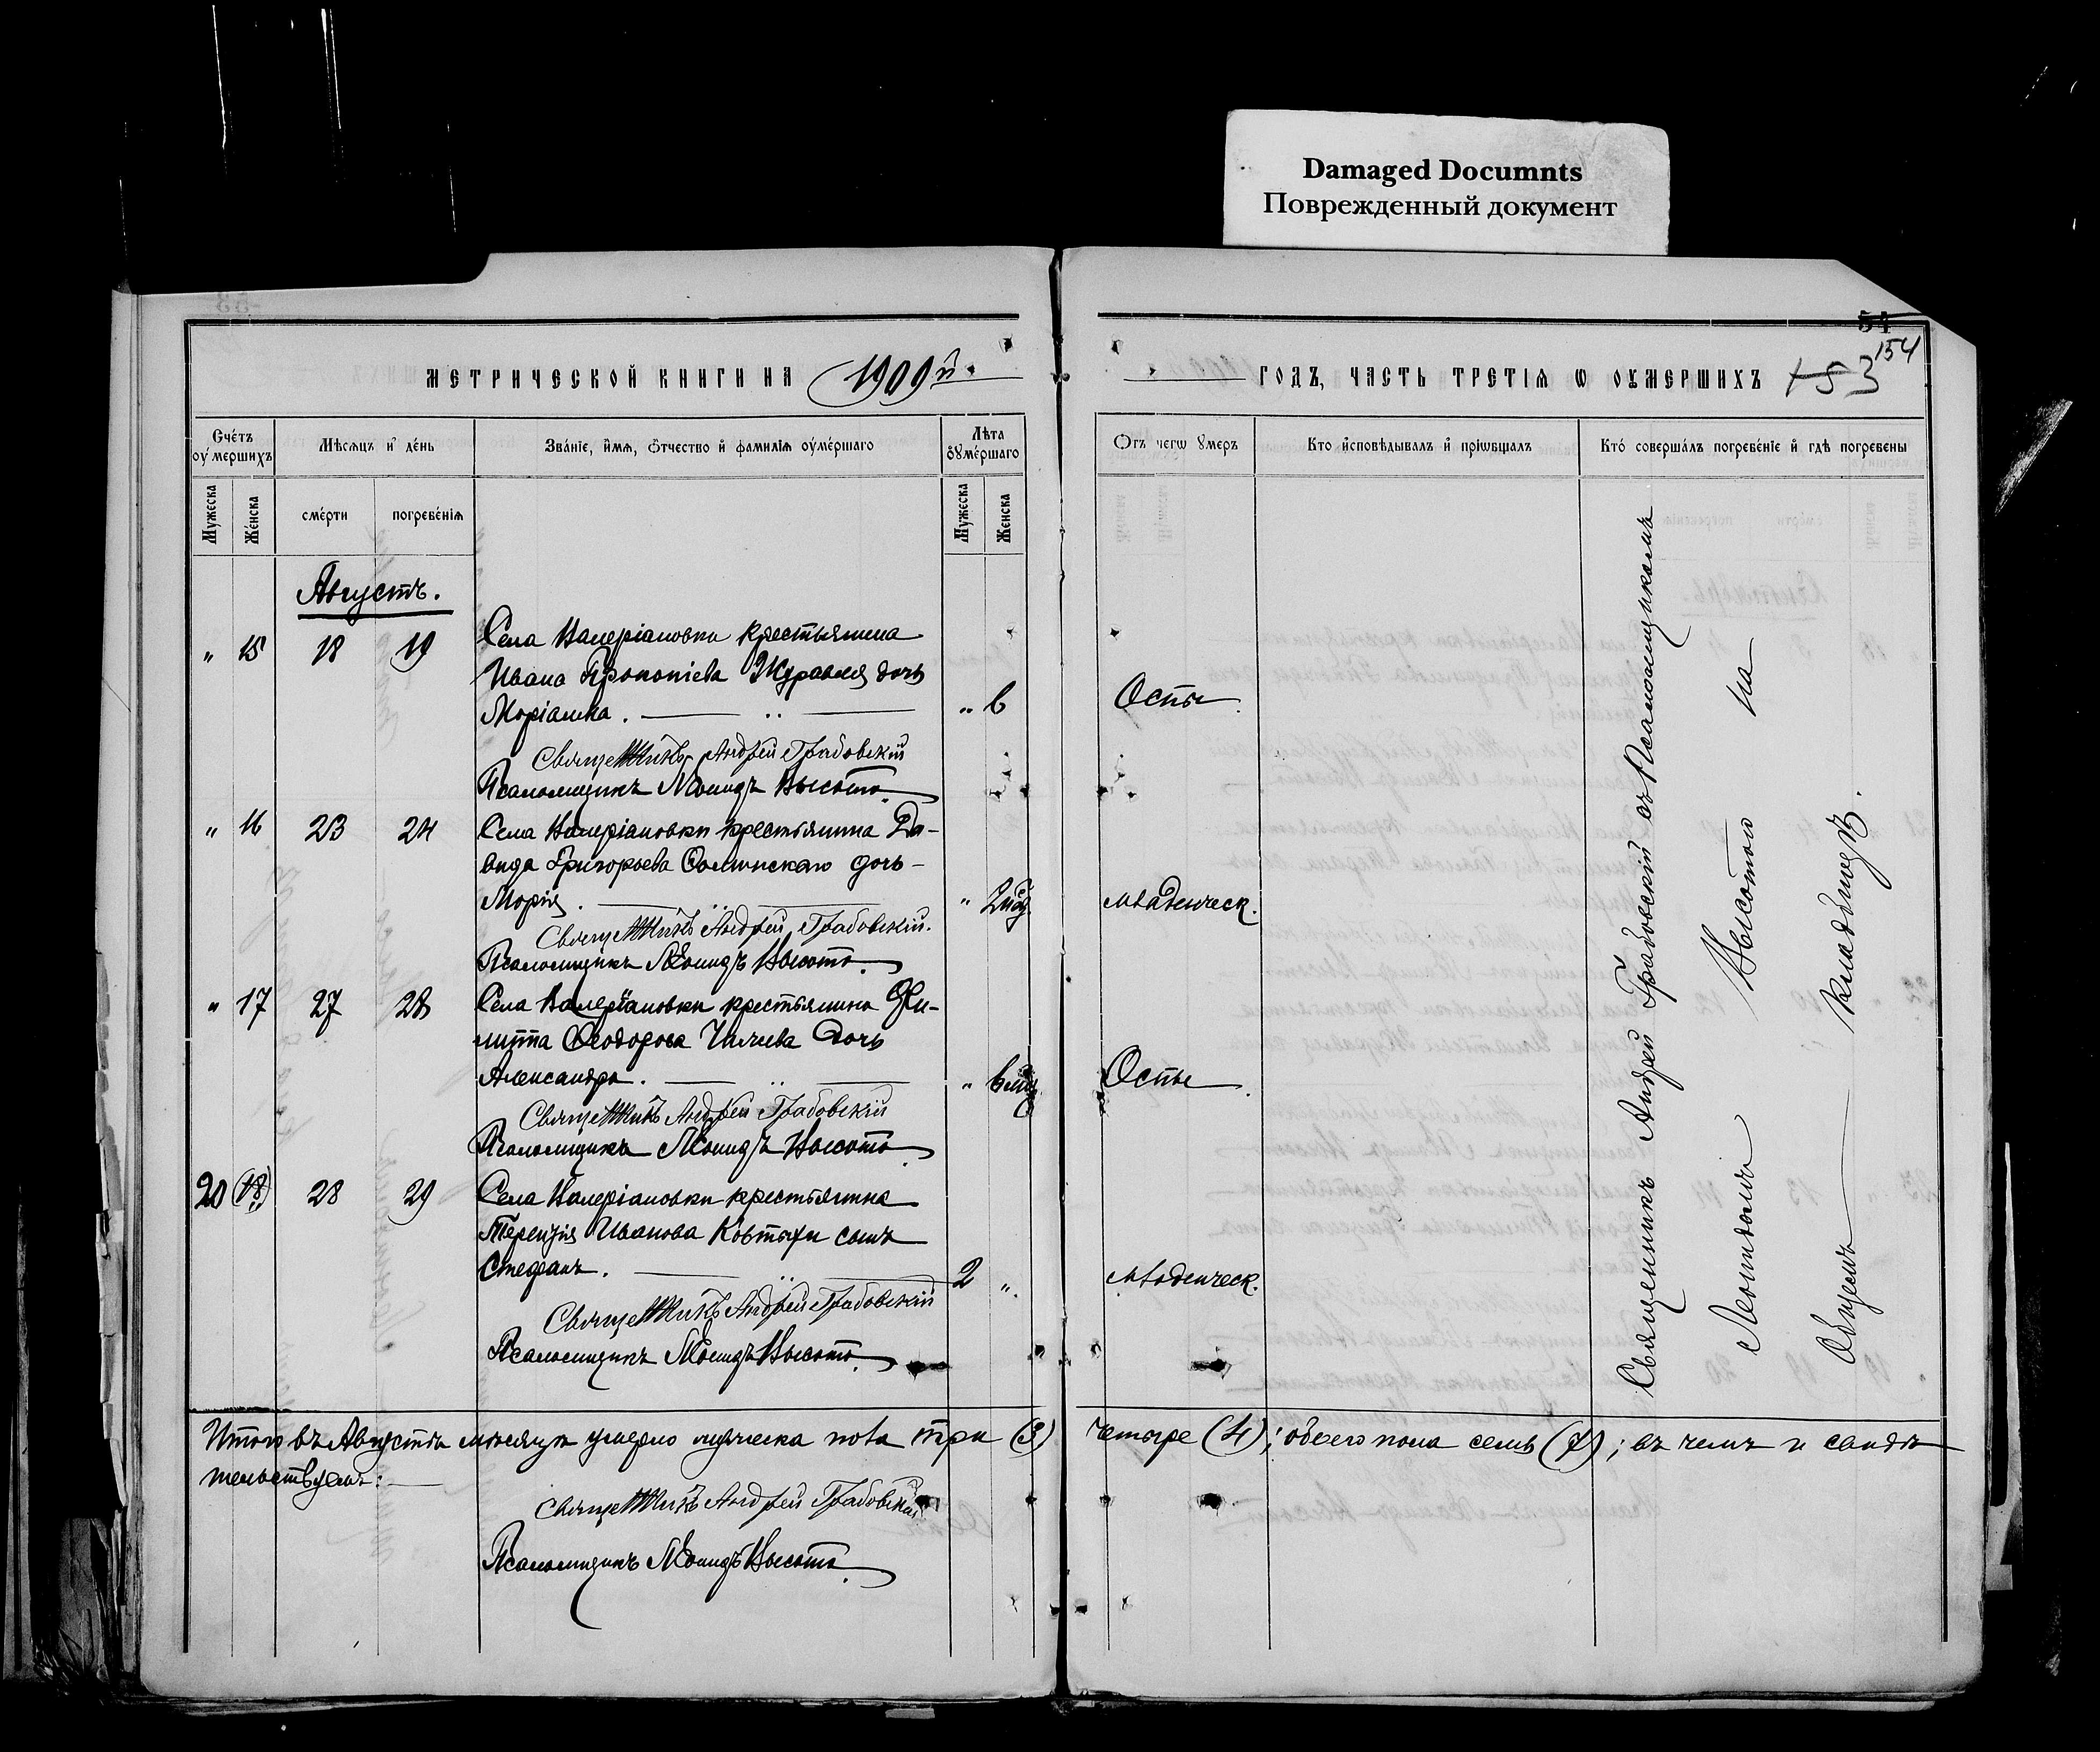 Damaged Documnts
Поврежденный документ
54
154
153
МЕТРИЧЕСКОЙ КНИГИ НА 1909й.
ГОДЪ, ЧАСТЬ ТРЕТІЯ Ѡ ОУМЕРШИХЪ
Счетъ оумершихъ
Мѣсяцъ и день
Званіе, имя, отчество и фамилія оумершаго
Лѣта оумершаго
Отъ чегѡ умеръ
Кто исповѣдывалъ и пріѡбщалъ
Кто совершалъ погребеніе и гдѣ погребены
Мужеска
Женска
смерти
погребенія
Мужеска
Женска
Августъ.
" 15 18 19 Села Валеріановки крестьянина
Ивана Прокопіева Журавля дочь
Маріамна. " 6 Оспы
Священникъ Андрей Грабовскій
Псаломщикъ Леонидъ Высота.
" 16 23 24 Села Валеріановки крестьянина Да-
вида Григорьева дочь
Марія. " младенческ.
Священникъ Андрей Грабовскій.
Псаломщикъ Леонидъ Высота.
" 17 27 28 Села Валеріановки крестьянина Фи-
липпа Ѳеодорова дочь
Александра. " 6 мц Оспы
Священникъ Андрей Грабовскій
Псаломщикъ Леонидъ Высота.
20 (18) 28 29 Села Валеріановки крестьянина
Терентія Иванова Ковтухи сынъ
Стефанъ. 2 " младенческ.
Священникъ Андрей Грабовскій
Псаломщикъ Леонидъ Высота.
Священникъ Андрей Грабовскій съ Псаломщикомъ
Леонидомъ Высотою на
Общемъ кладбищѣ.
Итого въ Августѣ мѣсяцѣ умерло мужеска пола три (3) четыре (4); обоего пола семь (7); въ чемъ и свидѣ
тельствуемъ:
Священникъ Андрей Грабовскій
Псаломщикъ Леонидъ Высота.